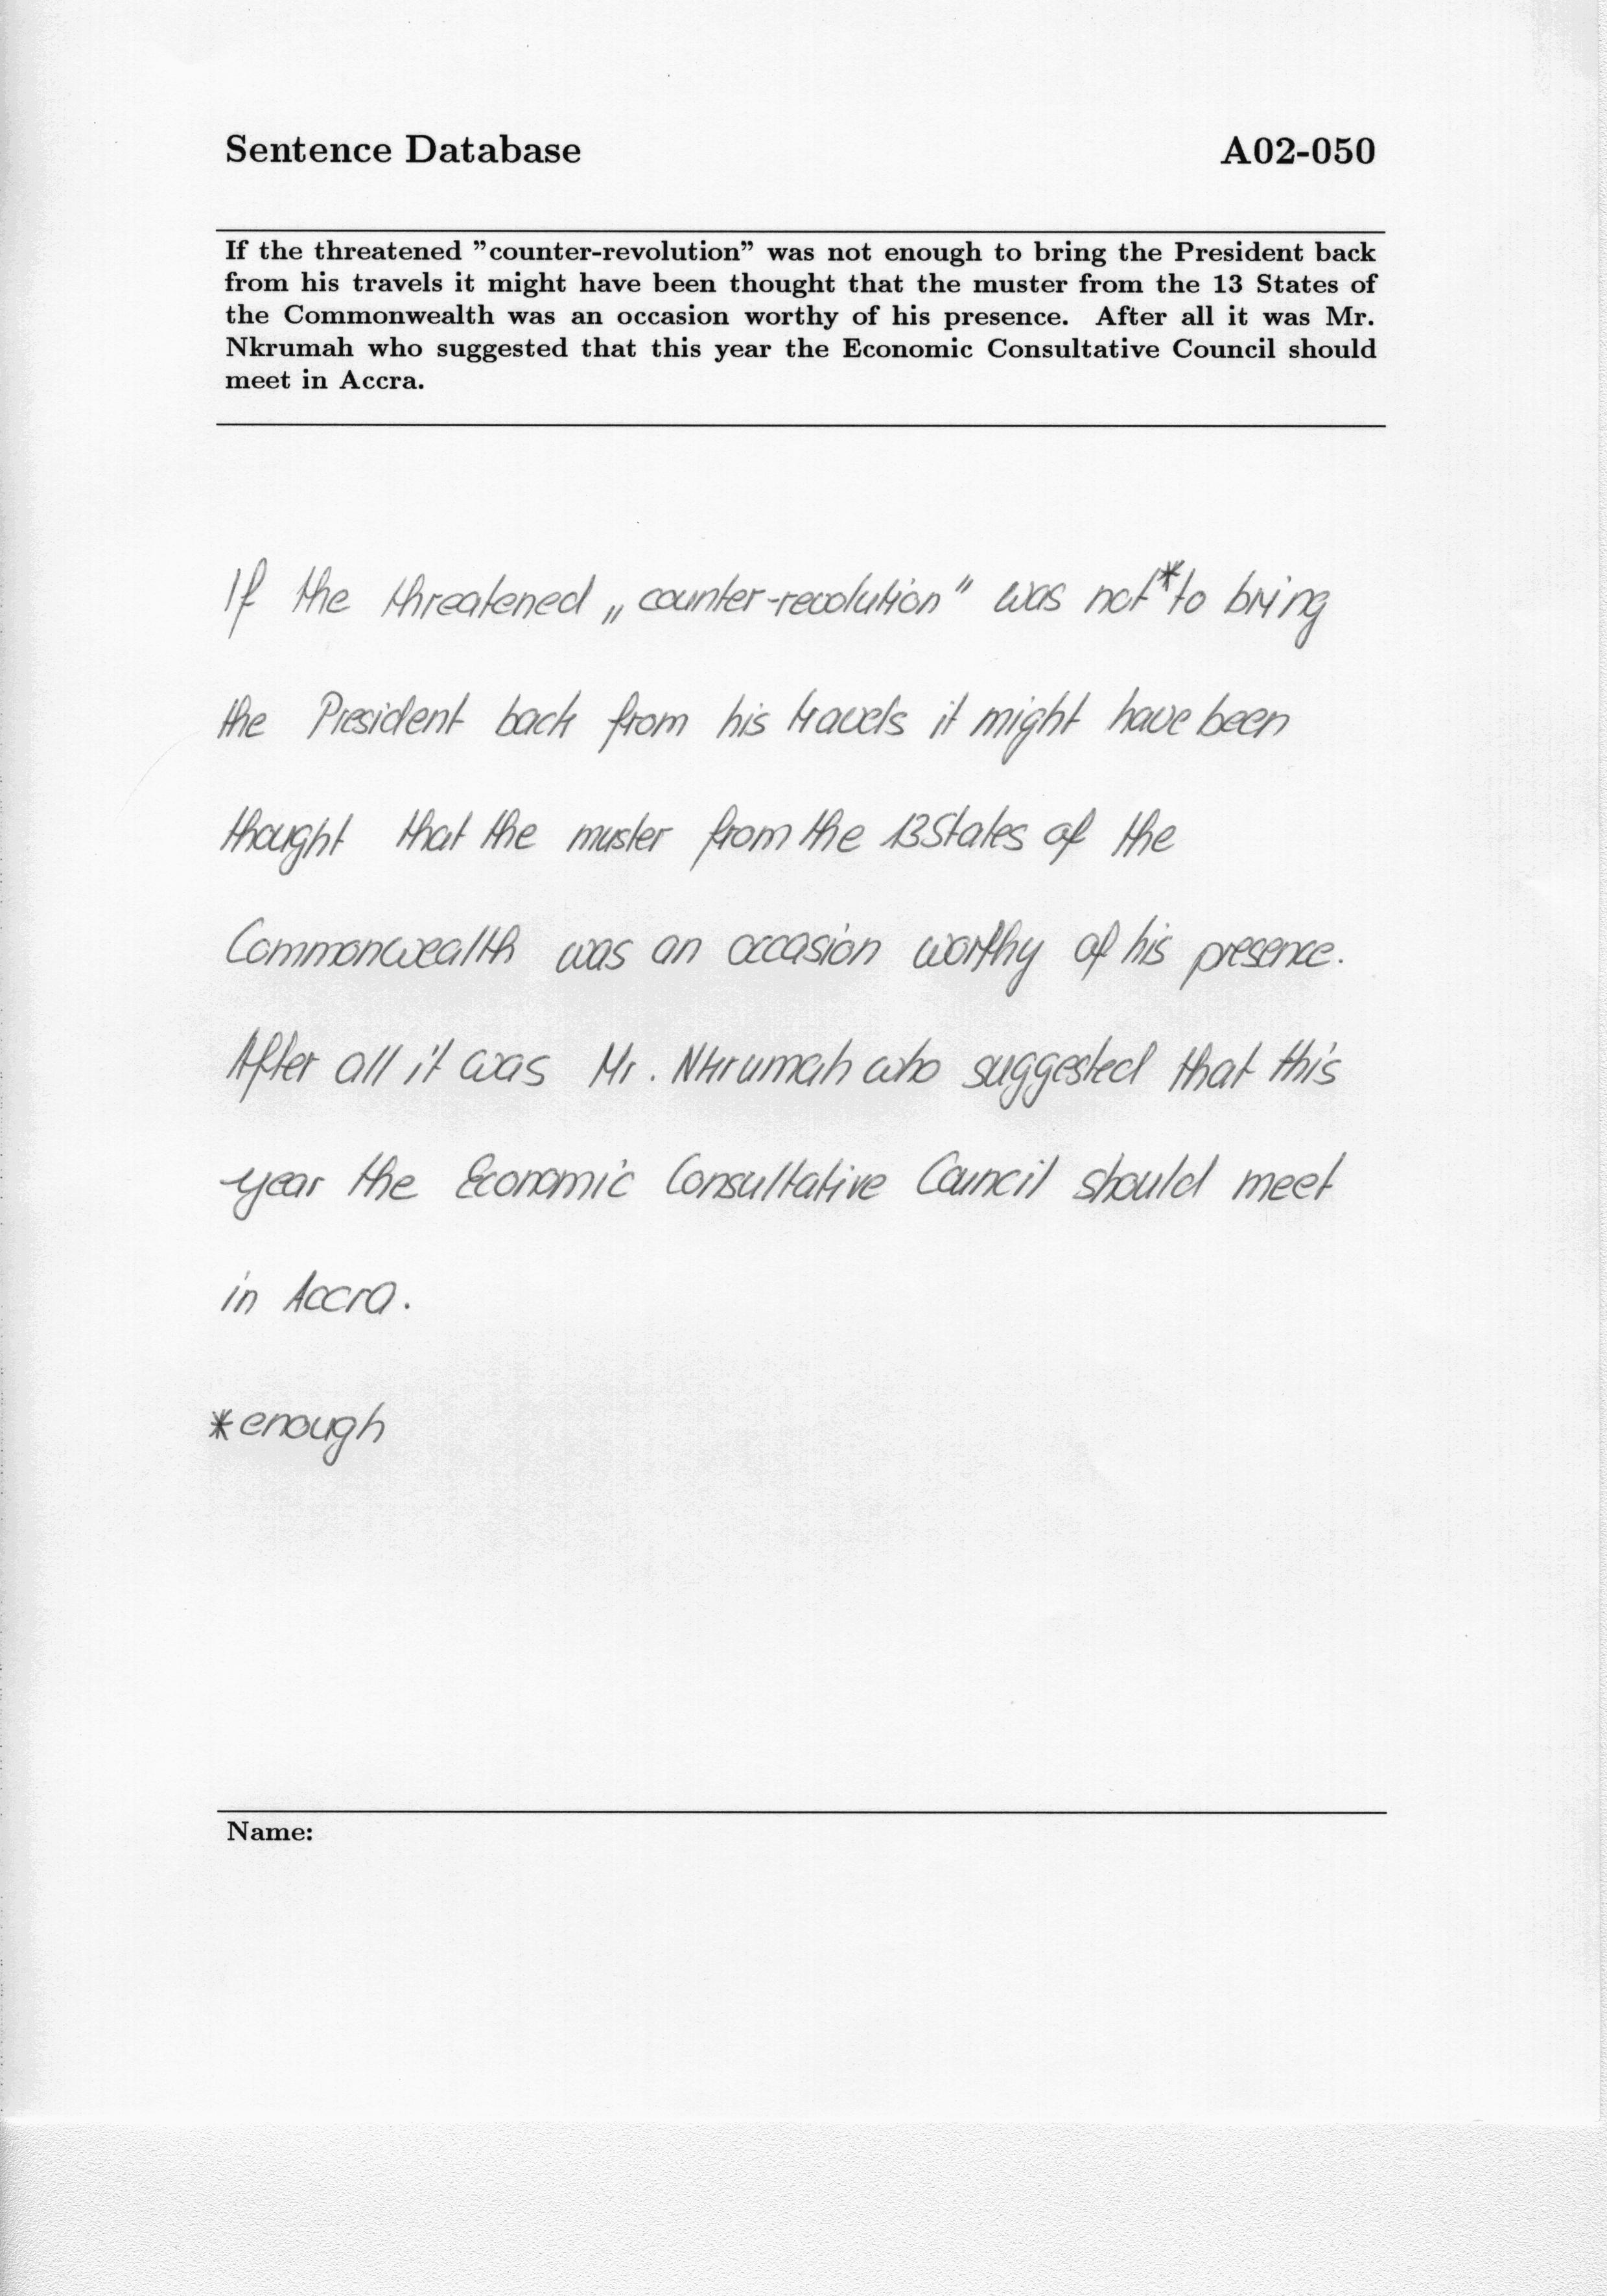 Sentence Database A02-050
If the threatened "counter-revolution" was not enough to bring the President back
from his travels it might have been thought that the muster from the 13 States of
the Commonwealth was an occasion worthy of his presence. After all it was Mr.
Nkrumah who suggested that this year the Economic Consultative Council should
meet in Accra.
If the threatened „counter-revolution" was not* to bring
the President back from his travels it might have been
thought that the muster from the 13 States of the
Commonwealth was an occasion worthy of his presence.
After all it was Mr. Nkrumah who suggested that this
year the Economic Consultative Council should meet
in Accra.
*enough
Name: